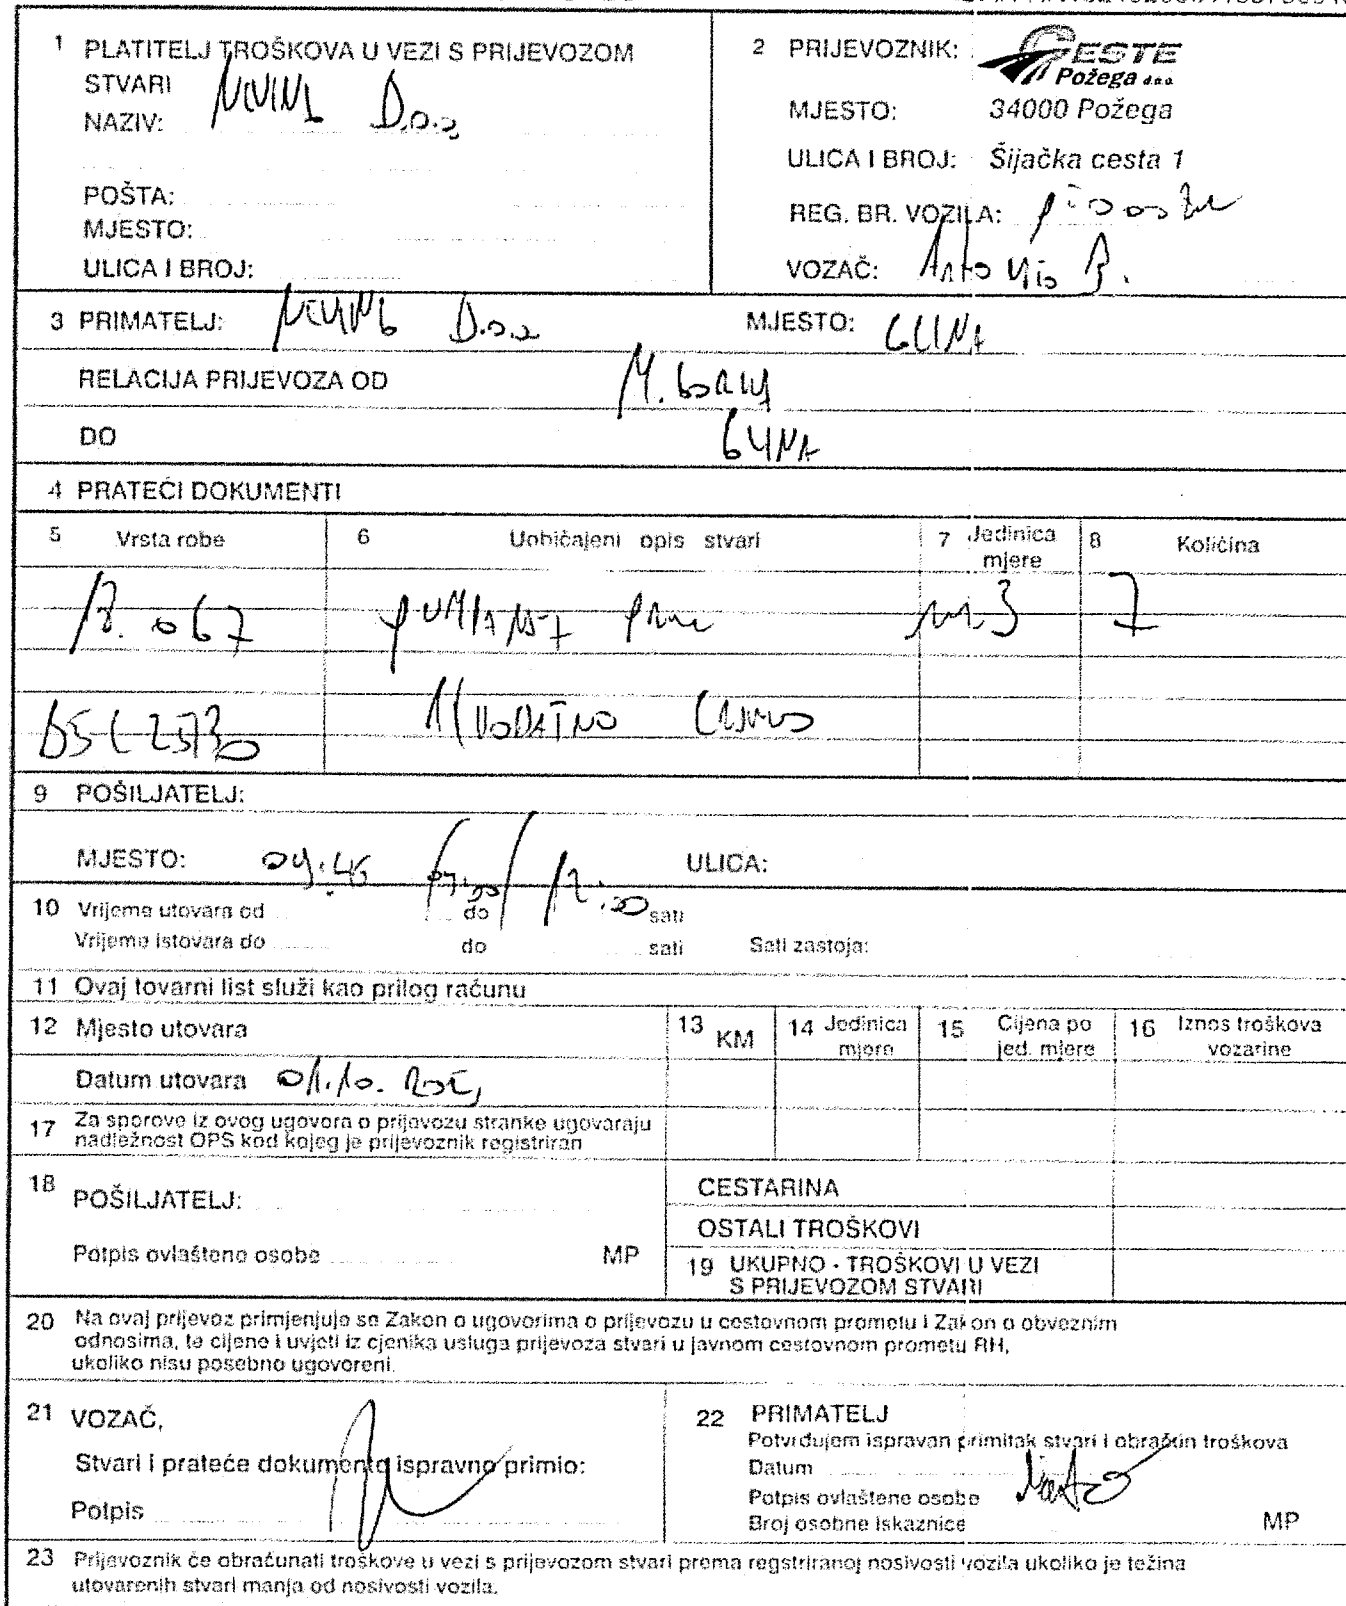 1 PLATITELJ TROŠKOVA U VEZI S PRIJEVOZOM
STVARI
NAZIV: D.o.o
POŠTA:
MJESTO:
ULICA I BROJ:
2 PRIJEVOZNIK: CESTE
Požega d.o.o.
MJESTO: 34000 Požega
ULICA I BROJ: Šijačka cesta 1
REG. BR. VOZILA:
VOZAČ: Antonio B.
3 PRIMATELJ: D.o.o MJESTO: GLINA
RELACIJA PRIJEVOZA OD M. GORICA
DO GLINA
4 PRATEĆI DOKUMENTI
5 Vrsta robe 6 Uobičajeni opis stvari 7 Jedinica mjere 8 Količina
B. 067 m3 7
9 POŠILJATELJ:
MJESTO: ULICA:
12:00
10 Vrijeme utovara od do sati
Vrijeme istovara do do sati Sati zastoja:
11 Ovaj tovarni list služi kao prilog računu
12 Mjesto utovara
13 KM 14 Jedinica mjere 15 Cijena po jed. mjere 16 Iznos troškova vozarine
Datum utovara 01.10.
17 Za sporove iz ovog ugovora o prijevozu stranke ugovaraju
nadležnost OPS kod kojeg je prijevoznik registriran
18 POŠILJATELJ:
Potpis ovlaštene osobe MP
CESTARINA
OSTALI TROŠKOVI
19 UKUPNO - TROŠKOVI U VEZI
S PRIJEVOZOM STVARI
20 Na ovaj prijevoz primjenjuje se Zakon o ugovorima o prijevozu u cestovnom prometu i Zakon o obveznim
odnosima, te cijene i uvjeti iz cjenika usluga prijevoza stvari u javnom cestovnom prometu RH,
ukoliko nisu posebno ugovoreni.
21 VOZAČ,
Stvari i prateće dokumente ispravno primio:
Potpis
22 PRIMATELJ
Potvrđujem ispravan primitak stvari i obračun troškova
Datum
Potpis ovlaštene osobe
Broj osobne iskaznice MP
23 Prijevoznik će obračunati troškove u vezi s prijevozom stvari prema regstriranoj nosivosti vozila ukoliko je težina
utovarenih stvari manja od nosivosti vozila.